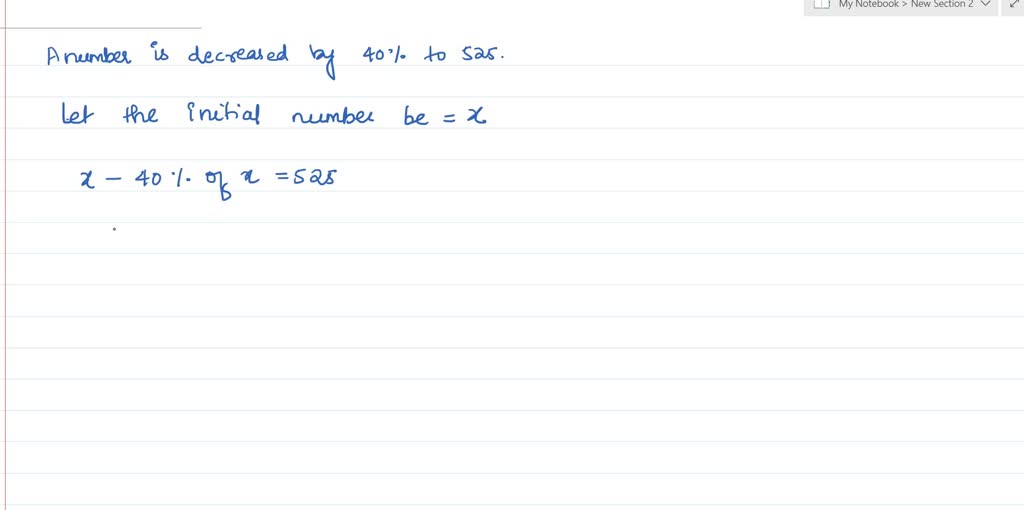 My Notebook > New Section 2
A number is decreased by 40% to 525.
Let the initial number be = x
x - 40% of x = 525